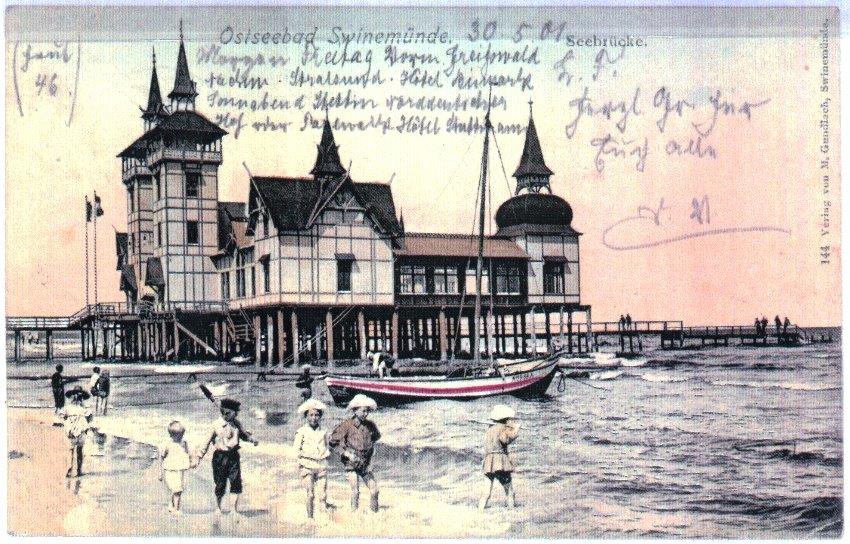 Ostseebad Swinemünde. 30 5.01
Seebrücke.
(heut
46)
Morgen Freitag Vorm. Greifswald
nachm. Stralsund. Hotel
Sonnabend Stettin Norddeutscher
Hof oder Pasewalk Hôtel
L. F.
herzl Gr für
Euch alle
144 Verlag von M. Gundlach, Swinemünde.